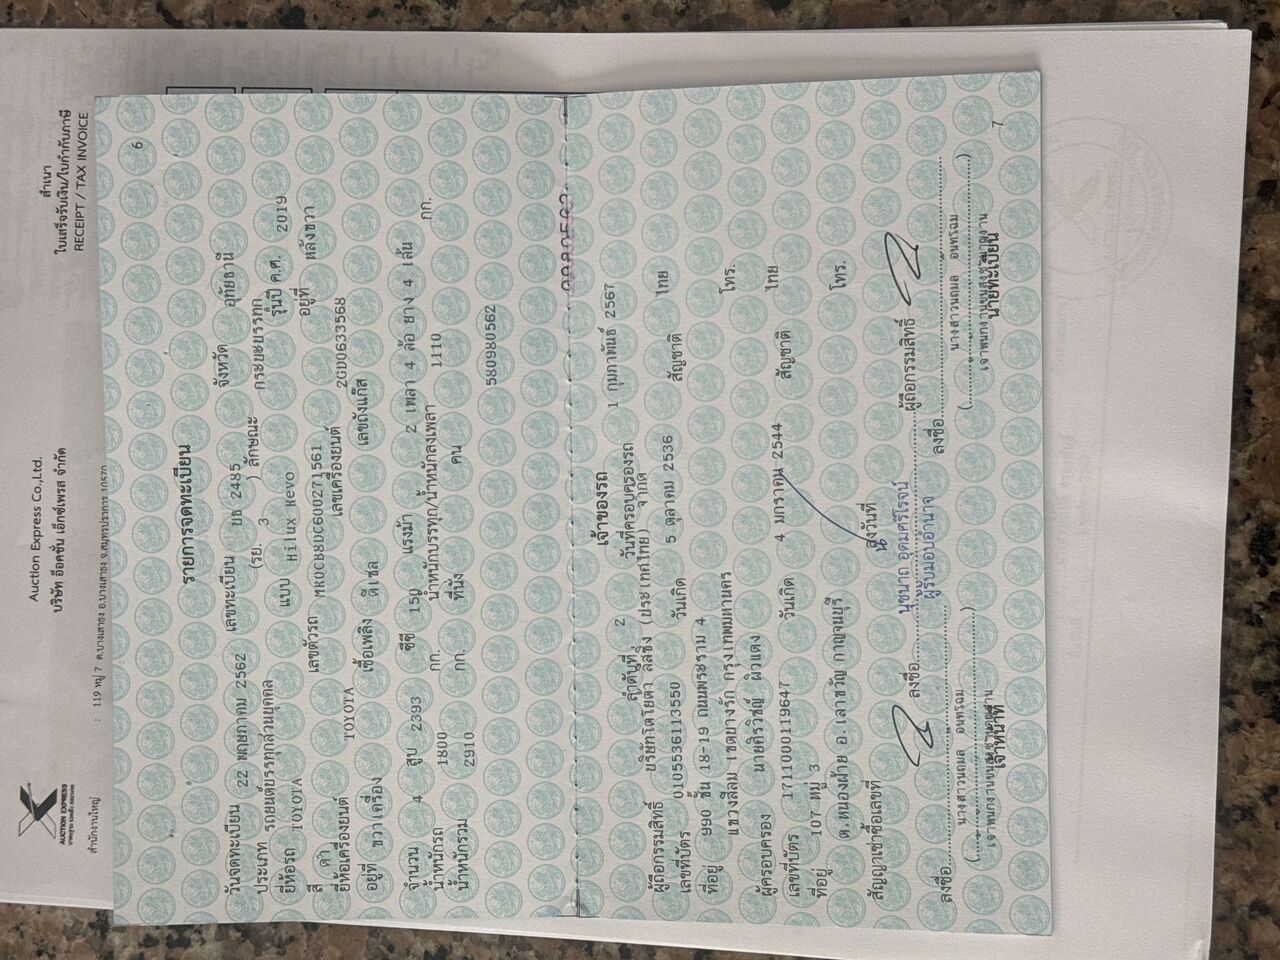 Auction Express Co.,Ltd.
บริษัท อ๊อคชั่น เอ็กซ์เพรส จำกัด
สำเนา
ใบเสร็จรับเงิน/ใบกำกับภาษี
RECEIPT / TAX INVOICE
AUCTION EXPRESS
สำนักงานใหญ่ : 119 หมู่ 7 ต.บางเสาธง อ.บางเสาธง จ.สมุทรปราการ 10570
6
รายการจดทะเบียน
วันจดทะเบียน 22 พฤษภาคม 2562 เลขทะเบียน ยธ 2485 จังหวัด อุทัยธานี
ประเภท รถยนต์บรรทุกส่วนบุคคล (รย. 3 ) ลักษณะ กระบะบรรทุก
ยี่ห้อรถ TOYOTA แบบ Hilux Revo รุ่นปี ค.ศ. 2019
สี ดำ เลขตัวรถ MR0CB8DC600271561 อยู่ที่ หลังขวา
ยี่ห้อเครื่องยนต์ TOYOTA เลขเครื่องยนต์ 2GD0633568
อยู่ที่ ขวาเครื่อง เชื้อเพลิง ดีเซล เลขถังแก๊ส
จำนวน 4 สูบ 2393 ซีซี 150 แรงม้า 2 เพลา 4 ล้อ ยาง 4 เส้น
น้ำหนักรถ 1800 กก. น้ำหนักบรรทุก/น้ำหนักลงเพลา 1110 กก.
น้ำหนักรวม 2910 กก. ที่นั่ง คน
580980562
เจ้าของรถ
ลำดับที่ 2 วันที่ครอบครองรถ 1 กุมภาพันธ์ 2567
ผู้ถือกรรมสิทธิ์ บริษัทโตโยต้า ลีสซิ่ง (ประเทศไทย) จำกัด
เลขที่บัตร 0105536113550 วันเกิด 5 ตุลาคม 2536 สัญชาติ ไทย
ที่อยู่ 990 ชั้น 18-19 ถนนพระราม 4
แขวงสีลม เขตบางรัก กรุงเทพมหานคร โทร.
ผู้ครอบครอง นายศิรวิชญ์ ผิวแดง
เลขที่บัตร 1711000119647 วันเกิด 4 มกราคม 2544 สัญชาติ ไทย
ที่อยู่ 107 หมู่ 3
ต.หนองฝ้าย อ.เลาขวัญ กาญจนบุรี โทร.
สัญญาเช่าซื้อเลขที่ ลงวันที่
นุชนาถ อุดมศรีโรจน์
ลงชื่อ ผู้ถือกรรมสิทธิ์
ผู้รับมอบอำนาจ
ลงชื่อ ลงชื่อ
เจ้าหน้าที่ นายทะเบียน
7